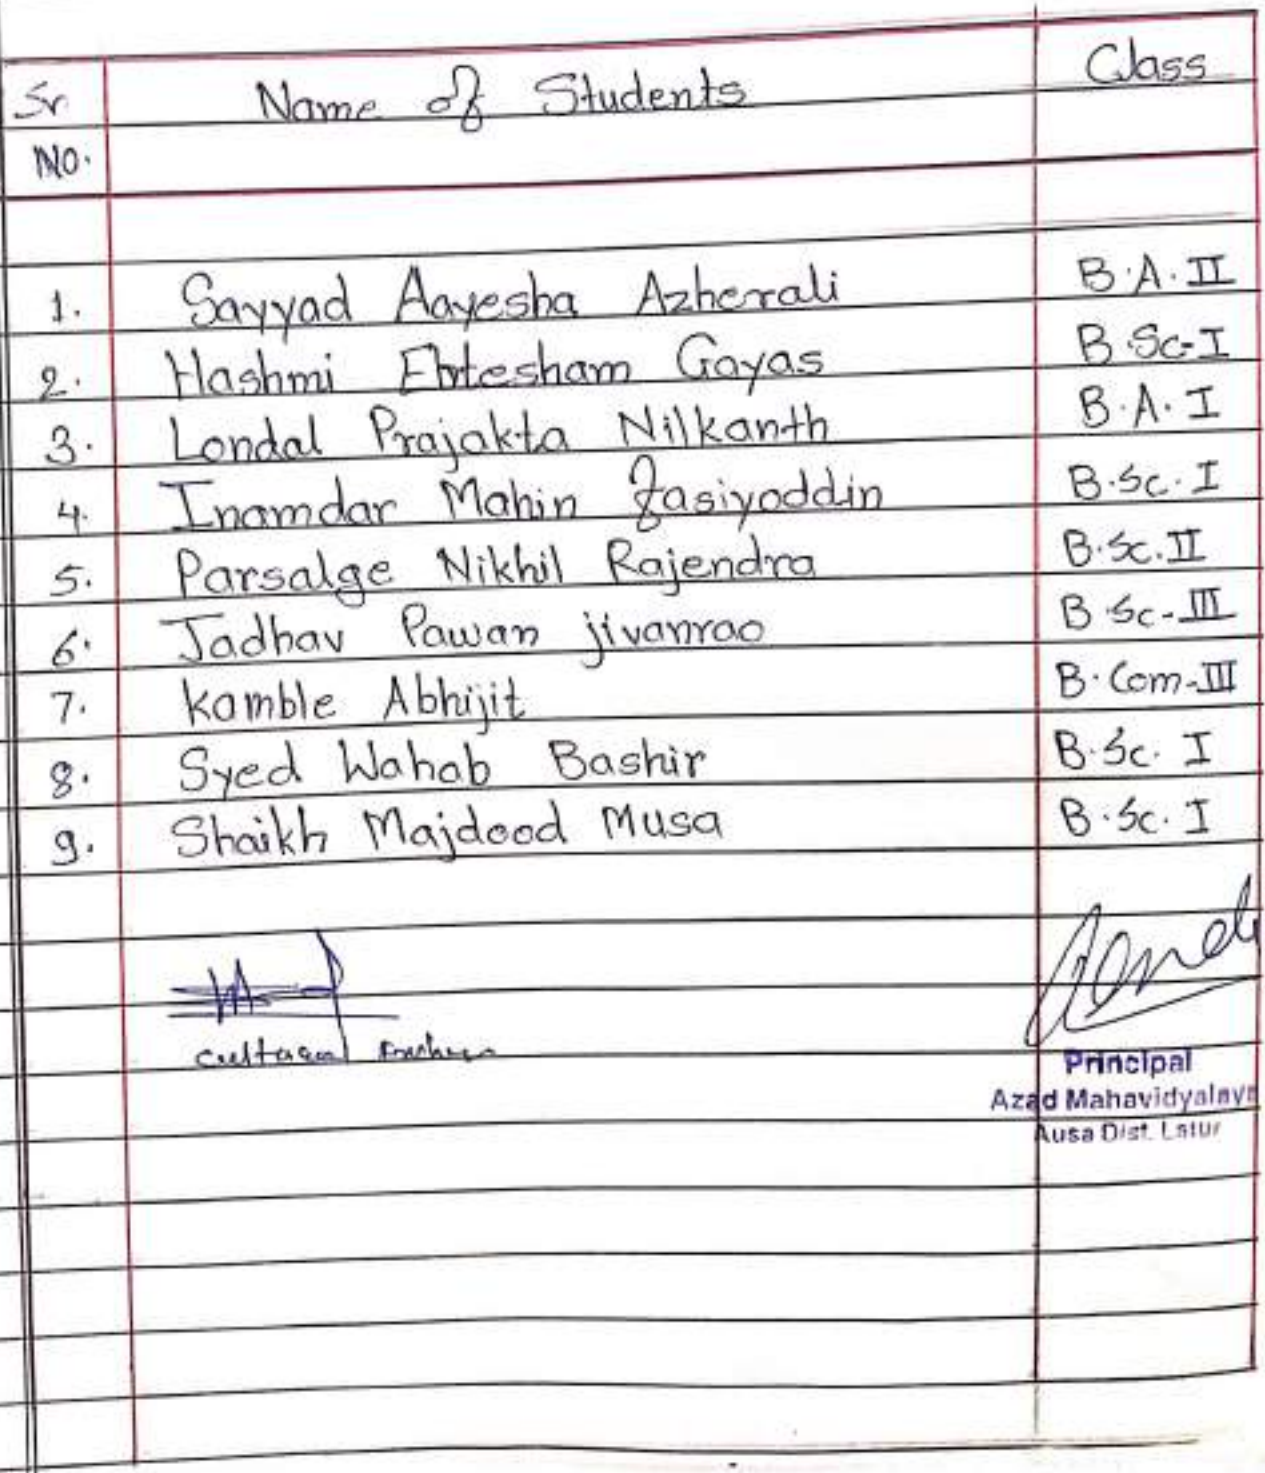 Sr Name of Students Class
No.
1. Sayyad Aayesha Azherali B.A.II
2. Hashmi Ehtesham Gayas B.Sc-I
3. Londal Prajakta Nilkanth B.A.I
4. Inamdar Mahin Zasiyoddin B.Sc.I
5. Parsalge Nikhil Rajendra B.Sc.II
6. Jadhav Pawan jivanrao B.Sc-III
7. Kamble Abhijit B.Com-III
8. Syed Wahab Bashir B.Sc.I
9. Shaikh Majdood Musa B.Sc.I
Cultural
Principal
Azad Mahavidyalaya
Ausa Dist. Latur